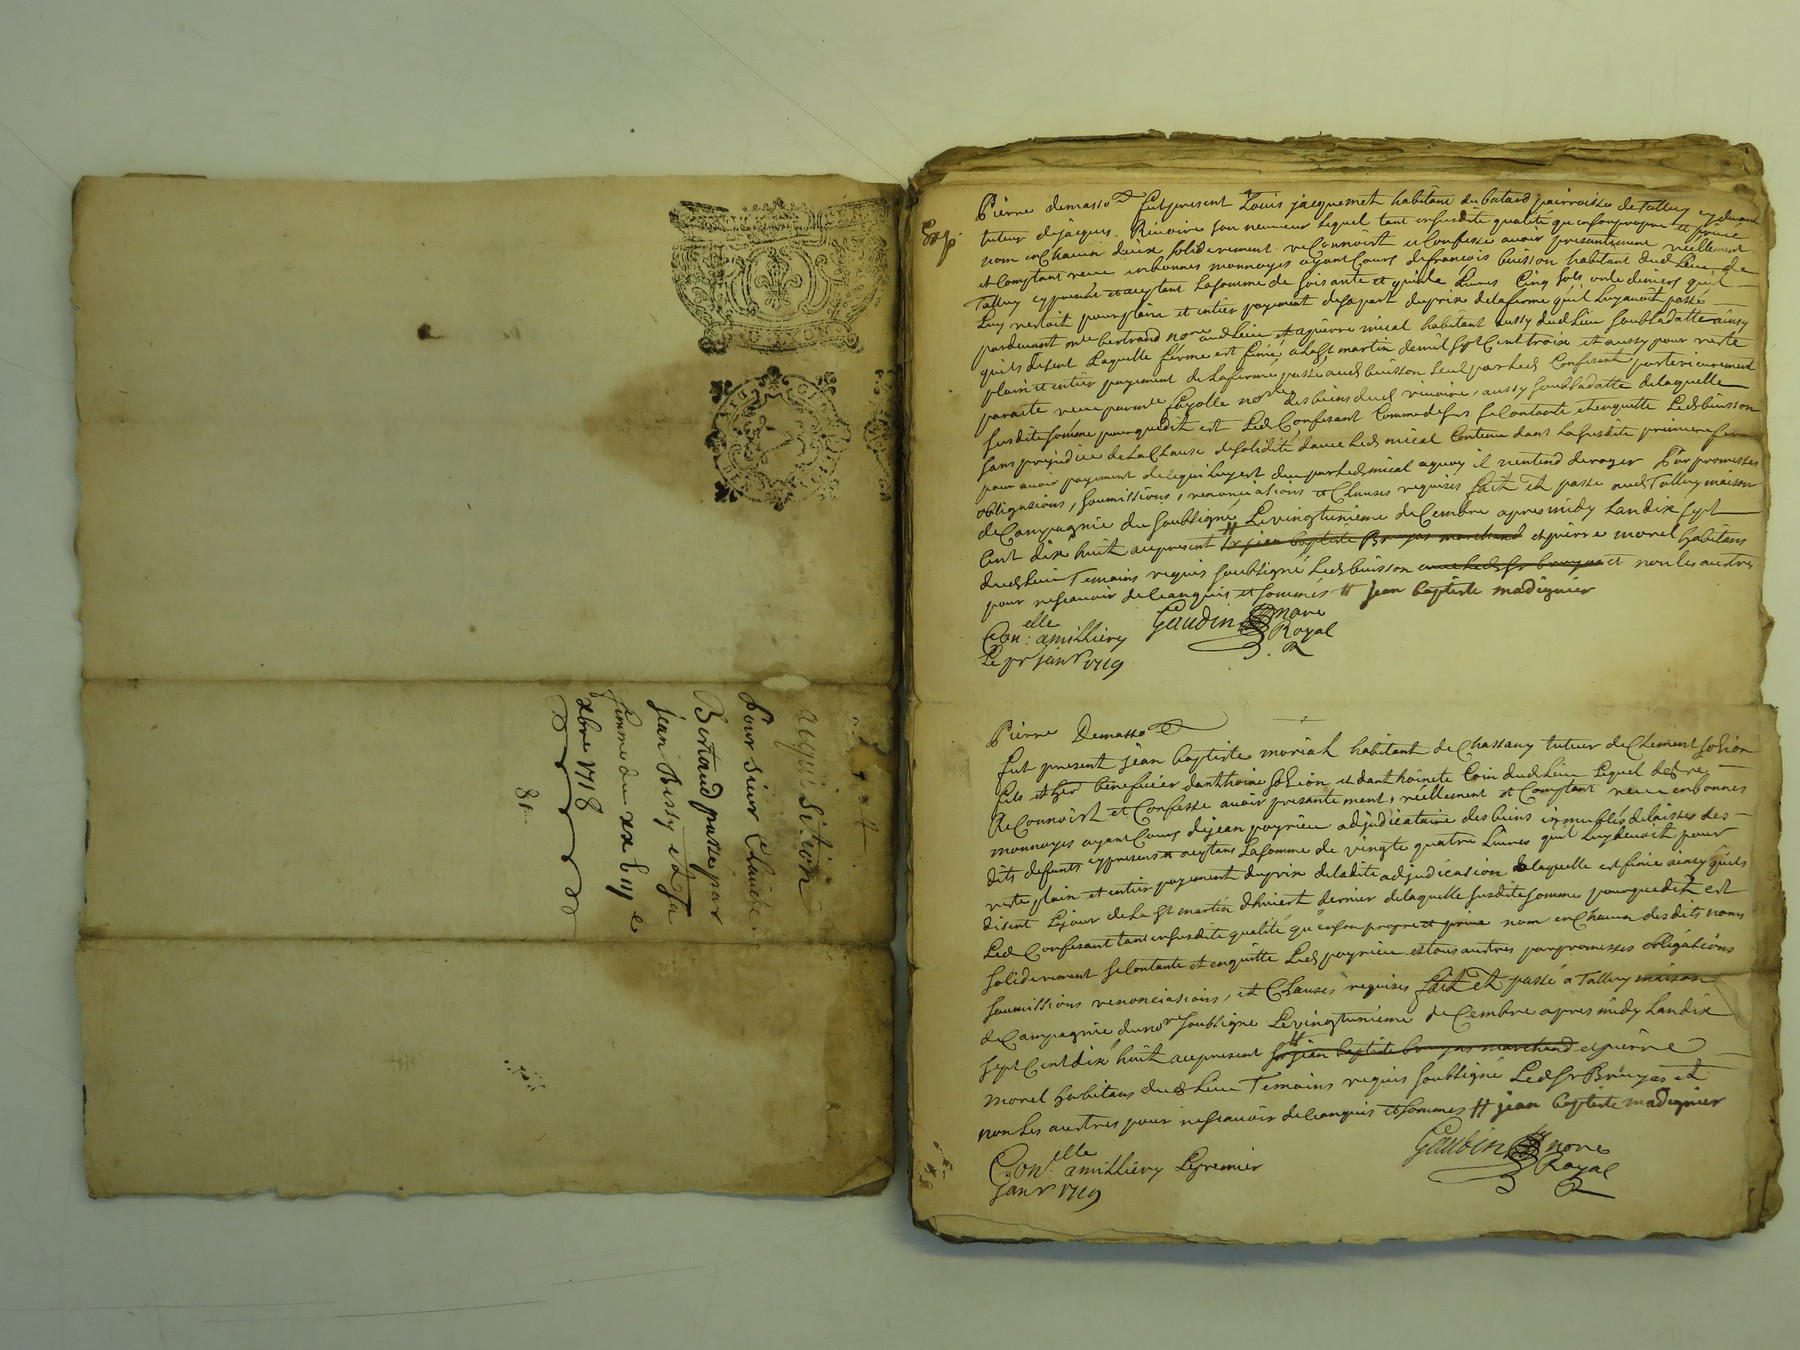 acquisition
Pour sieur Claude
Bertaud passée par
jean Rissy et sa
femme du xxbiije
xbre 1718
Exp.
Pierre Demasso fut present Louis jacquemet habitant du batard parroisse de Talluy cy devant
tuteur de jacques Rivoire son nepveur lequel tant en susdite qualité qu'en son propre et privé
nom en chacun d'eux soliderement reconnoist et confesse avoir presantement reellement
et comptant receu en bonnes monnoyes ayant cours de francois buisson habitant dud lieu de
Talluy cy present et aceptant la somme de soisante et quinze Livres cinq sols onze deniers qu'il
Luy restoit pour plain et entier payement de sa part du prix de la ferme qu'il Luy avoit passé
pardevant me bertrand nore aud lieu et a pierre mical habitant aussy dud lieu soubs la datte ainsy
qu'ils disent Laquelle ferme est finie a la st martin de mil sept cent troix et aussy pour reste
plain et entier payement de la ferme passé aud buisson seul par led Confesant posterieurement
paracte receu par me fayolle nore des biens dud rivoire, aussy soubs la datte de laquelle
susdite somme pourquedit est Led Confesant comme desus se contante et enquitte Led buisson
sans prejudice de la Clause de solidité d'avec led mical contenu dans la susdite premiere ferme
pour avoir payement de ce qui luy est deu par led mical a quoy il n'entend deroger Par promesses
obligasions, soumissions, renonciasions et Clauses requises fait et passé aud Talluy maison
de Campagnie du soubsigné Le vingtunieme decembre apres midy Lan dix sept
Cent dix huit au present sr jean baptiste Bruyas marchand et pierre morel habitans
dud lieu Temoins requis soubsigné Led buisson avec led sr bruyas et non les autres
pour ne scavoir de ce anquis et sommés # jean baptiste madignier
Gaudin nore
Royal
Conelle a milliery
Le pr janvr 1719
Pierre Demasso
fut present jean baptiste moriat habitant de Chassany tuteur de Clement Solion
fils et her beneficier d'anthoine Solion et d'anthoinete Coin dud lieu Lequel de gre
Reconnoist et Confesse avoir presantement, réellement et Comptant receu en bonnes
monnoyes ayant Cours de jean poyrieu adjudicataire des biens immeubles delaisses des
dits defunts cy present et aceptans La somme de vingte quatre Livres qu'il Luy devoit pour
reste plain et entier payement du prix de ladite adjudicasion de laquelle est finie ainsy qu'ils
disent Le jour de la St martin d'hivert dernier de laquelle susdite somme pourquedit est
Led Confesant tant en susdite qualité qu'en son propre et privé nom en Chacun des dits noms
soliderement se contante et en quitte Led poyrieu et tous autres par promesses obligasions
soumissions renonciasions, et Clauses requises fait et passé a Talluy maison
de Campagnie du nore soubsigne Le vingtunieme decembre apres midy Lan dix
sept Cent dix huit au present sr jean baptiste bruyas marchand et pierre
morel habitans dud Lieu Temoins requis soubsigné Led sr Bruyas et
non Les autres pour ne scavoir de ce anquis et sommes # jean baptiste madignier
Gaudin nore
Royal
Conelle a milliery Le premier
janvr 1719